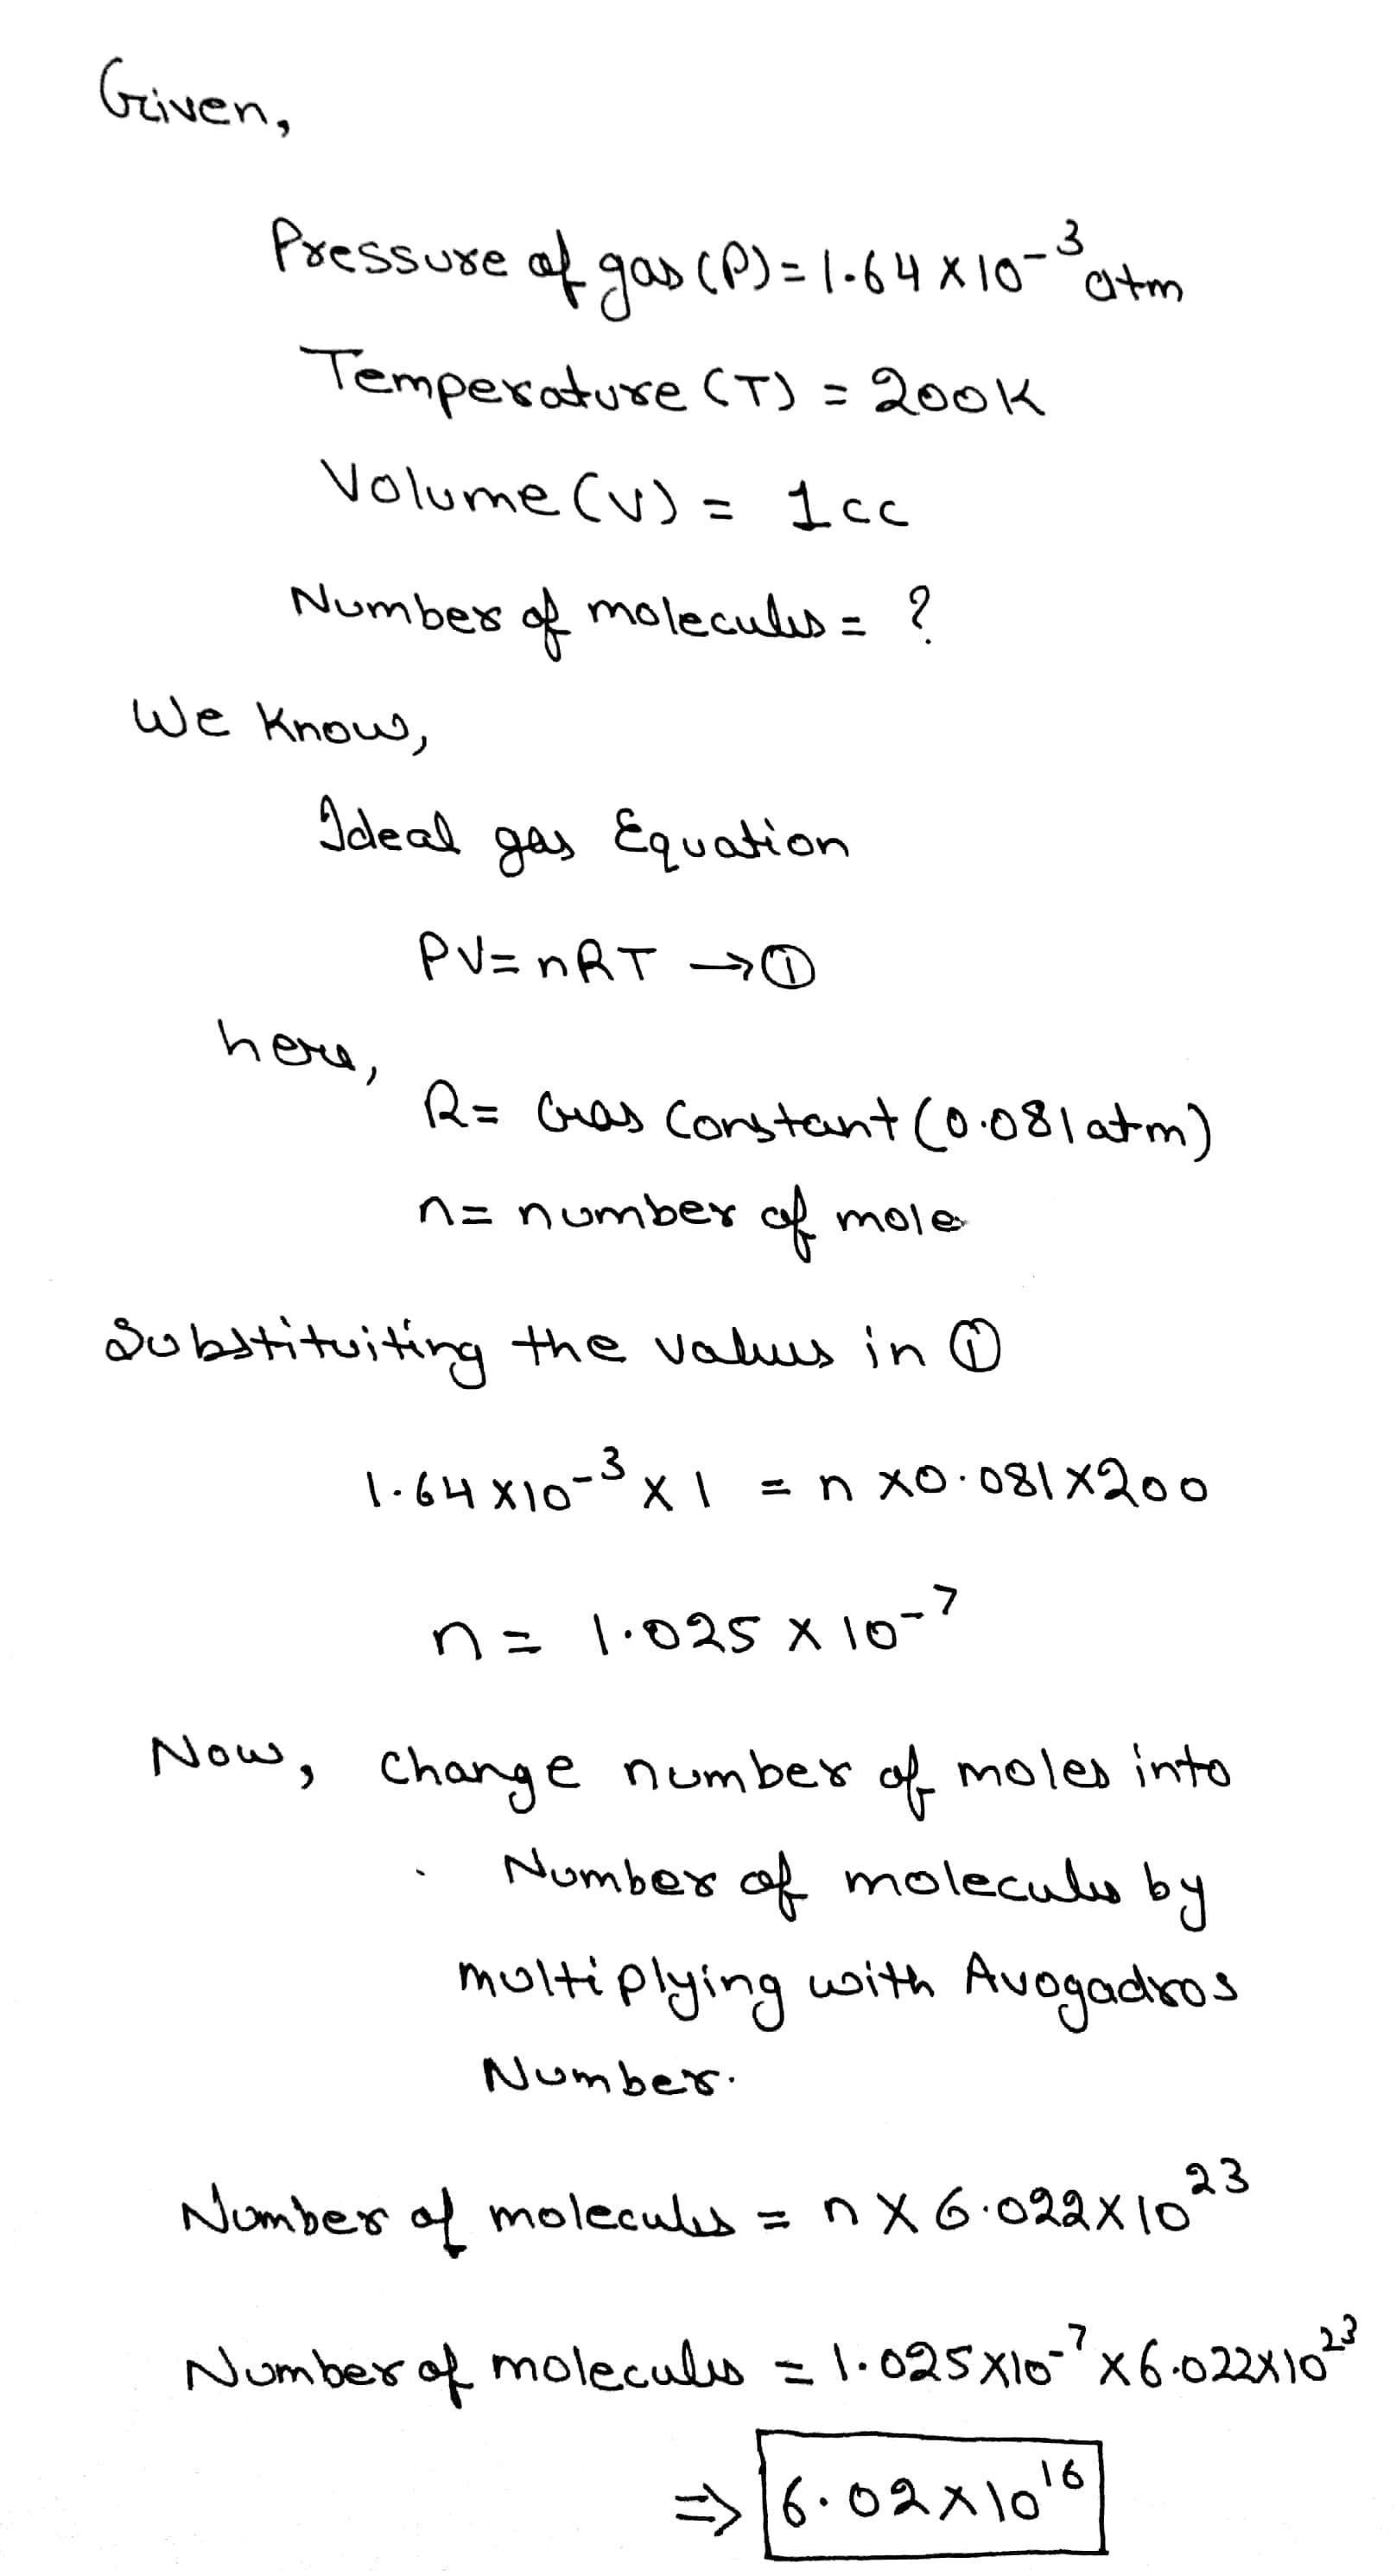 Given,
Pressure of gas (P) = 1.64 x 10⁻³ atm
Temperature (T) = 200K
Volume (V) = 1cc
Number of molecules = ?
We Know,
Ideal gas Equation
PV = nRT → ①
here,
R = Gas Constant (0.081atm)
n = number of mole
Substituiting the values in ①
1.64 x 10⁻³ x 1 = n x 0.081 x 200
n = 1.025 x 10⁻⁷
Now, change number of moles into
Number of molecules by
multiplying with Avogadros
Number.
Number of molecules = n x 6.022 x 10²³
Number of molecules = 1.025 x 10⁻⁷ x 6.022 x 10²³
⇒ 6.02 x 10¹⁶